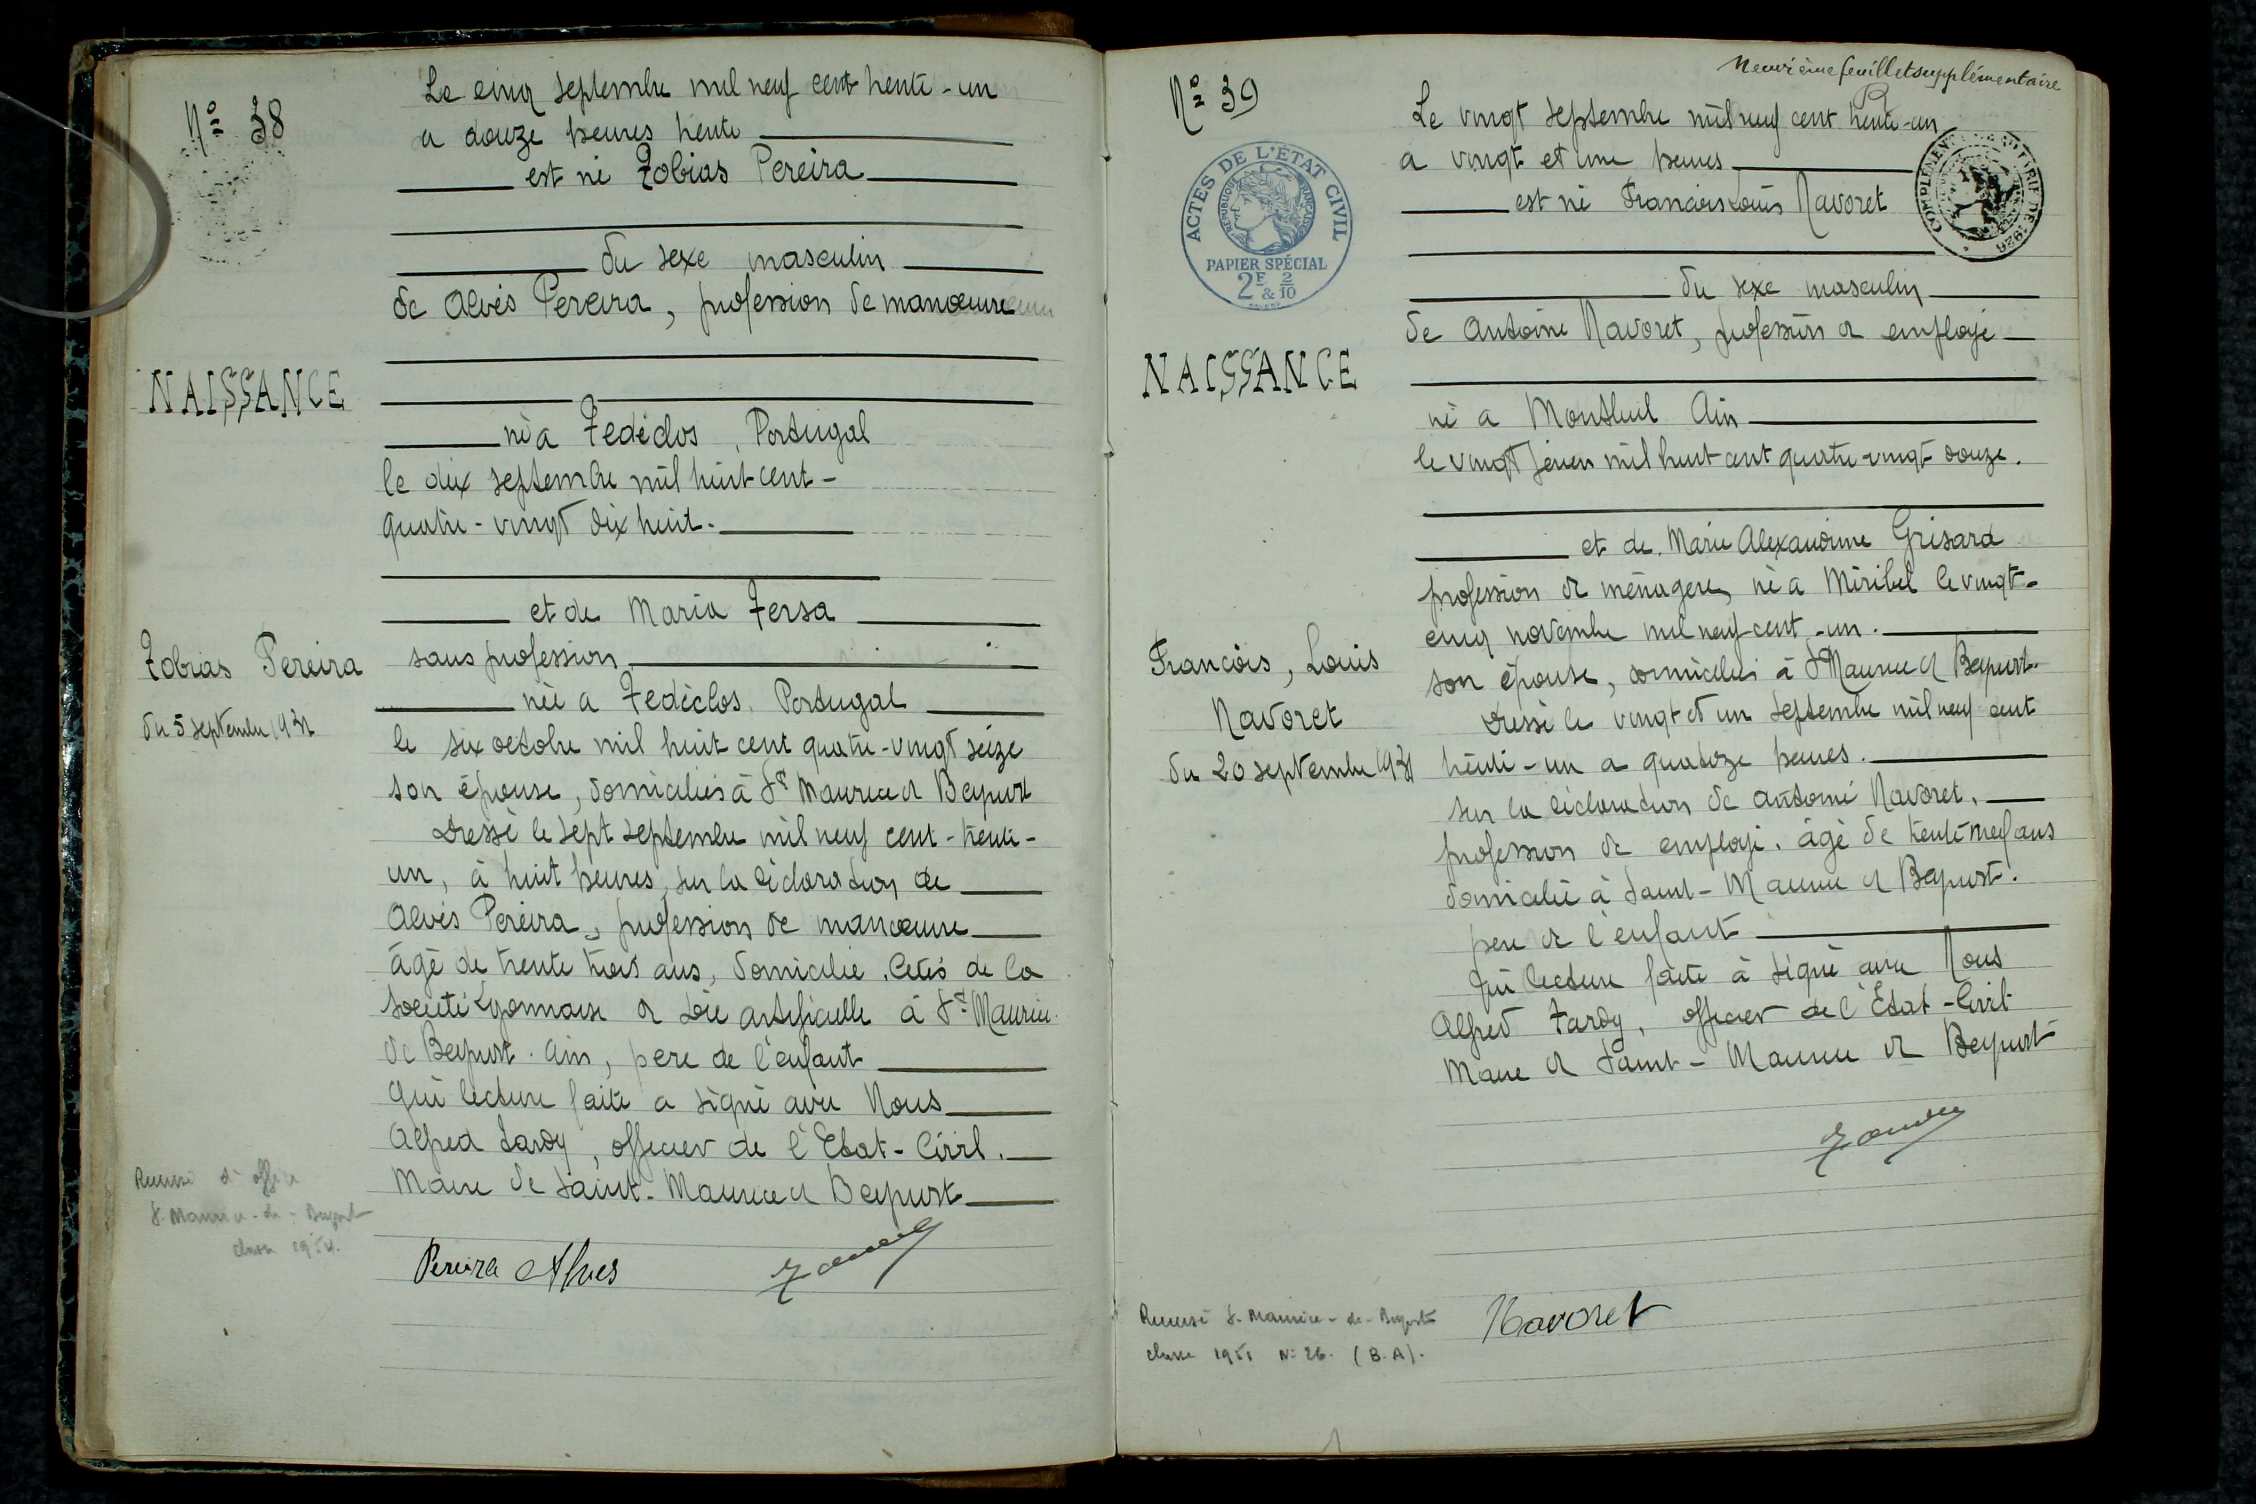 Nº 38
Le cinq septembre mil neuf cent trente-un
a douze heures trente
est né Tobias Pereira
du sexe masculin
de Alvés Pereira, profession de manœuvre
NAISSANCE
né a Fediclos, Portugal
le dix septembre mil huit cent-
quatre-vingt dix huit.
et de Maria Tersa
Tobias Pereira
du 5 septembre 1931
sans profession
née a Fediclos, Portugal
le six octobre mil huit cent quatre-vingt seize
son épouse, domiciliés à St Maurice de Beynost
Dressé le sept septembre mil neuf cent-trente-
un, à huit heures, sur la déclaration de
Alvés Pereira, profession de manœuvre
âgé de trente trois ans, domicilié, Cités de la
Société Lyonnaise de Soie artificielle à St Maurice
de Beynost. Ain, père de l'enfant
qui lecture faite a signé avec Nous
Alfred Tardy, officier de l'Etat-Civil.
Maire de Saint-Maurice de Beynost
Recensé d'office
S. Maurice-de-Beynost
classe 1951.
Pereira Alves
Neuvième feuillet supplémentaire
Nº 39
ACTES DE L'ÉTAT CIVIL
RÉPUBLIQUE FRANÇAISE
PAPIER SPÉCIAL
2F & 2/10
Le vingt septembre mil neuf cent trente-un
a vingt et une heures
est né François Louis Navoret
du sexe masculin
de Antoine Navoret, profession de employé
NAISSANCE
né a Montluel Ain
le vingt février mil huit cent quatre-vingt douze.
et de Marie Alexandrine Grisard
profession de ménagère, né a Miribel le vingt-
cinq novembre mil neuf-cent-un.
son épouse, domiciliés à St Maurice de Beynost.
François, Louis
Navoret
du 20 septembre 1931
Dressé le vingt et un septembre mil neuf cent
trente-un a quatorze heures.
sur la déclaration de Antoine Navoret,
profession de employé, âgé de trente neuf ans
domicilié à Saint-Maurice de Beynost.
père de l'enfant
Qui lecture faite à signé avec Nous
Alfred Tardy, officier de l'Etat-Civil
Maire de Saint-Maurice de Beynost
Tardy
Navoret
Recensé S. Maurice-de-Beynost
classe 1951 N: 26. (B.A).